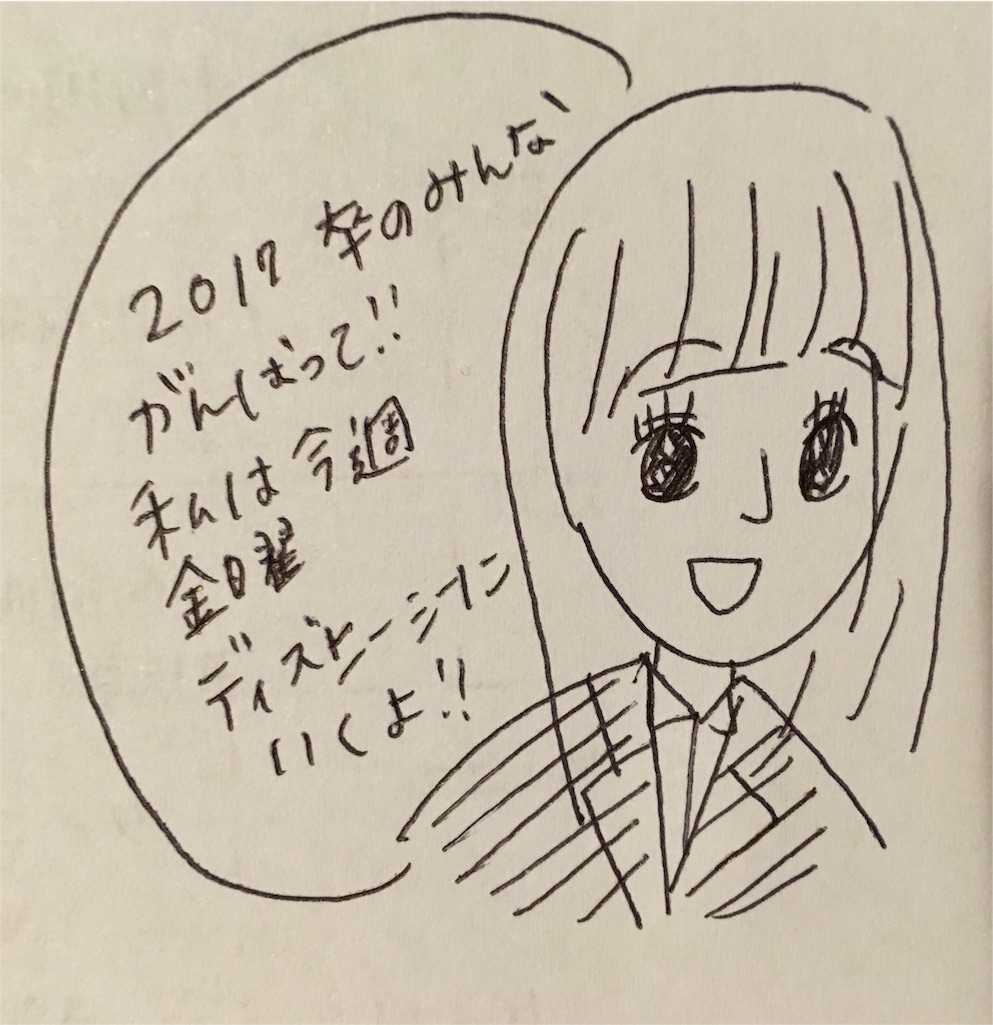 2017 卒のみんな
がんばって!!
私は今週
金曜日
ディズニーシーに
いくよ!!